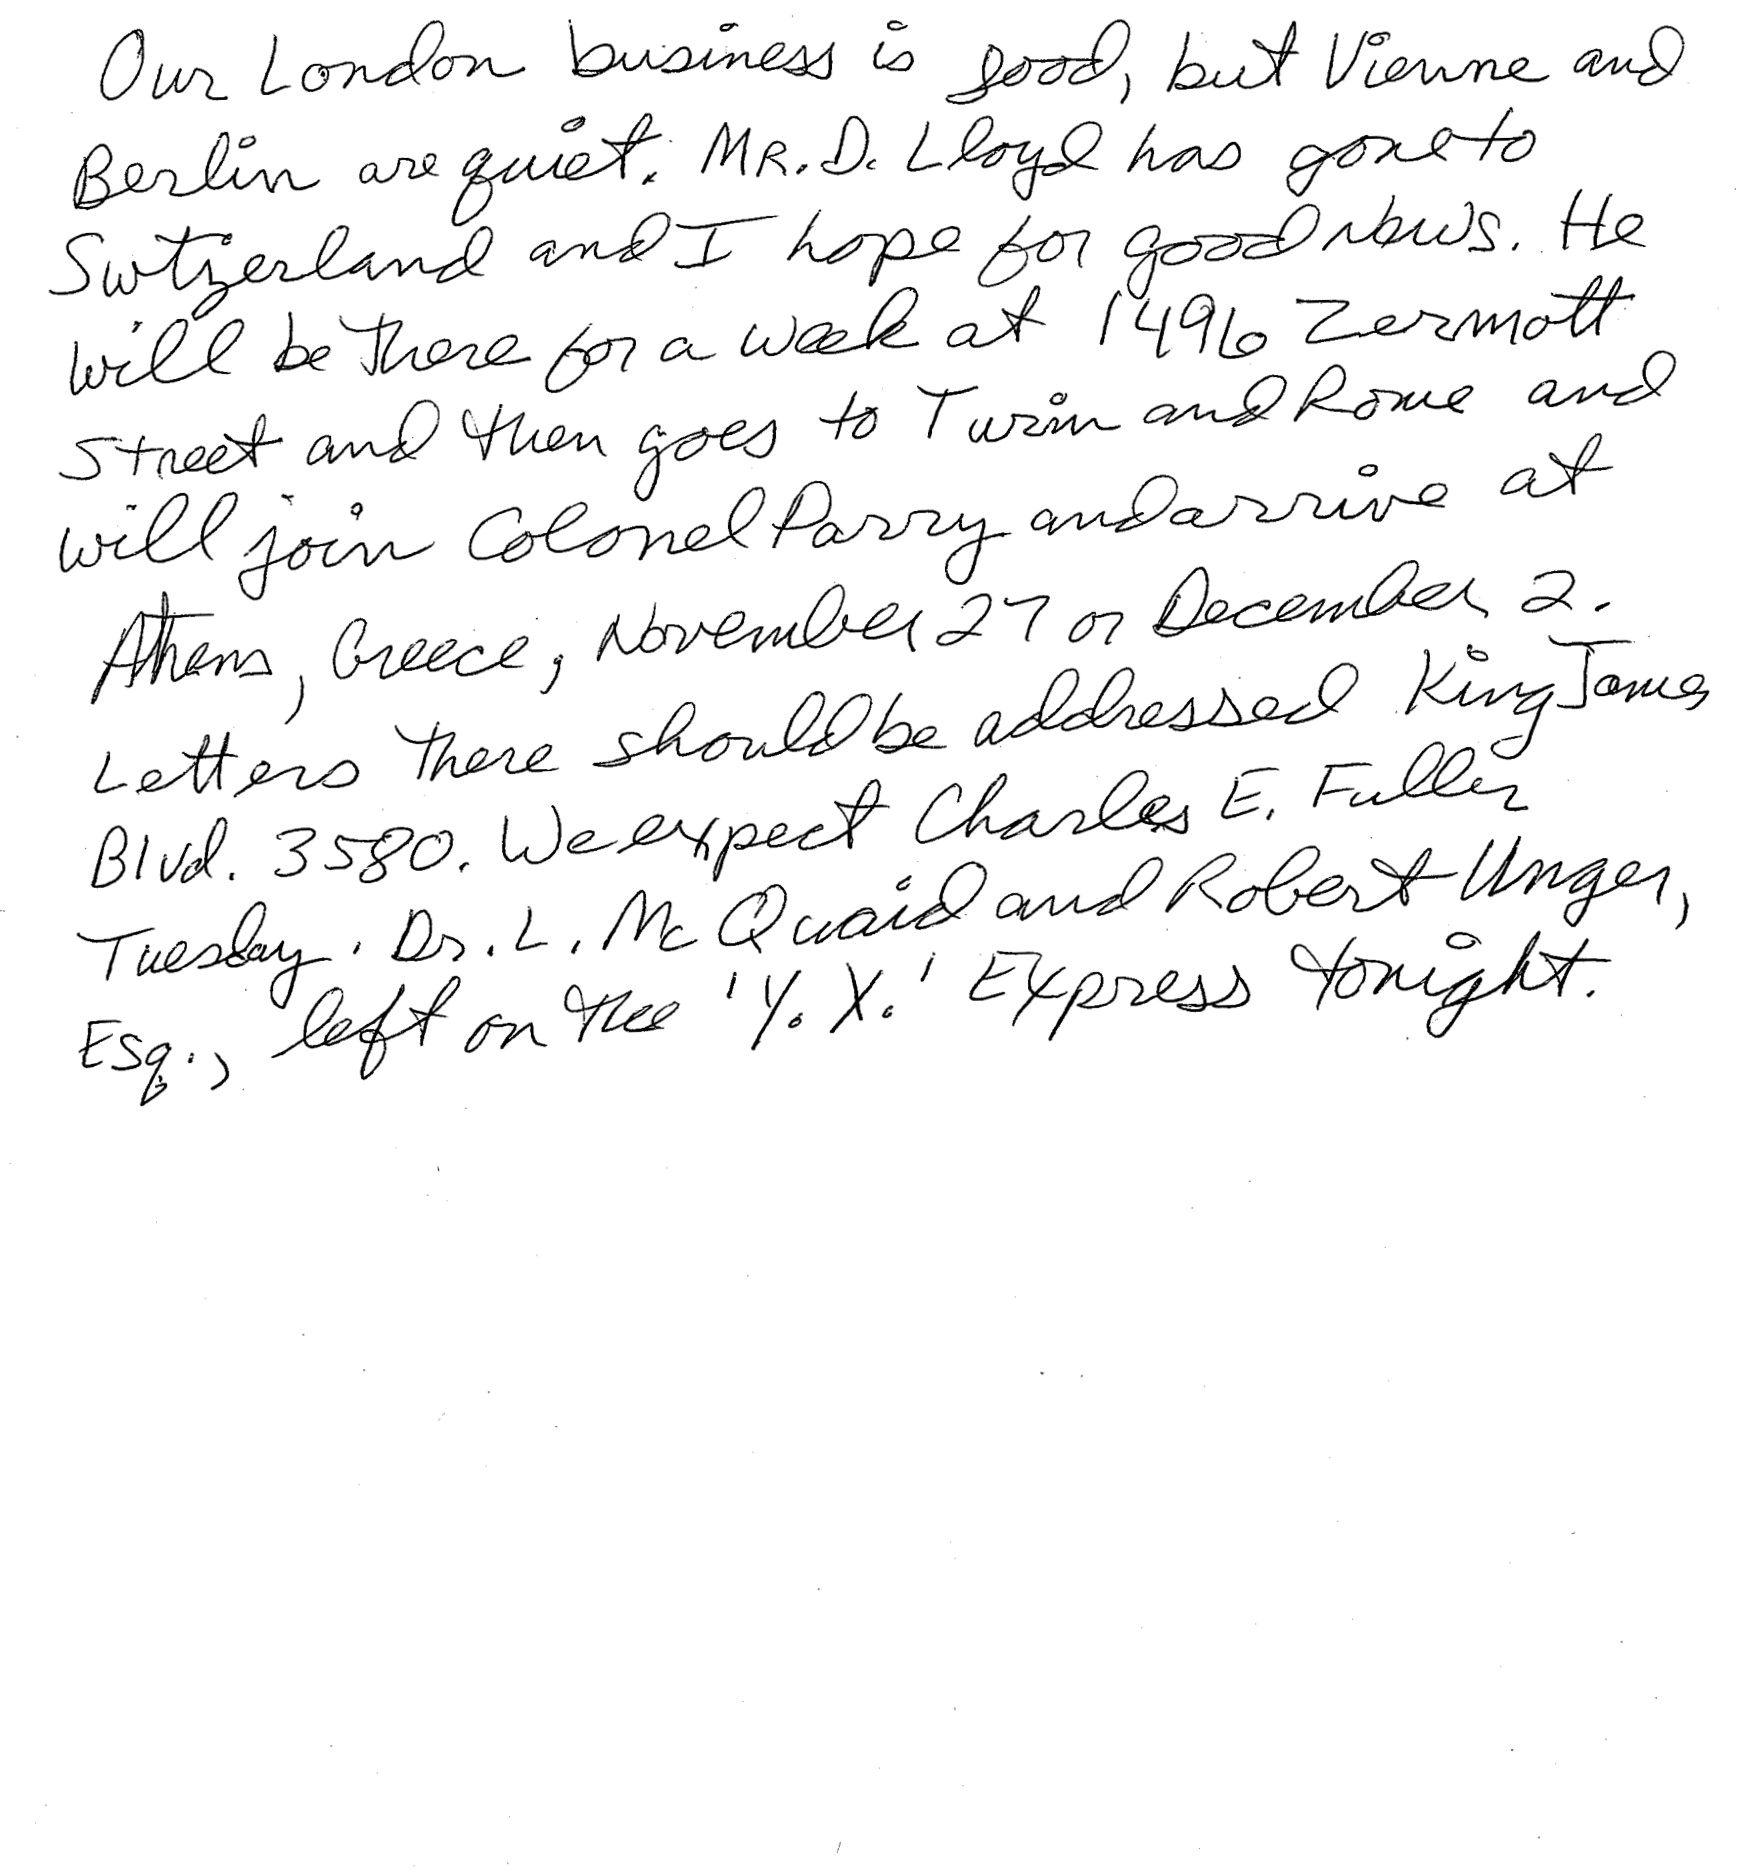 Our London business is good, but Vienne and
Berlin are quiet. MR. D. Lloyd has gone to
Switzerland and I hope for good news. He
will be there for a week at 1496 Zermott
Street and then goes to Turin and Rome and
will join Colonel Parry and arrive at
Athens, Greece, November 27 or December 2.
Letters there should be addressed King James
Blvd. 3580. We expect Charles E. Fuller
Tuesday. Dr. L. Mc Quaid and Robert Unger,
Esq., left on the 'Y. X.' Express tonight.